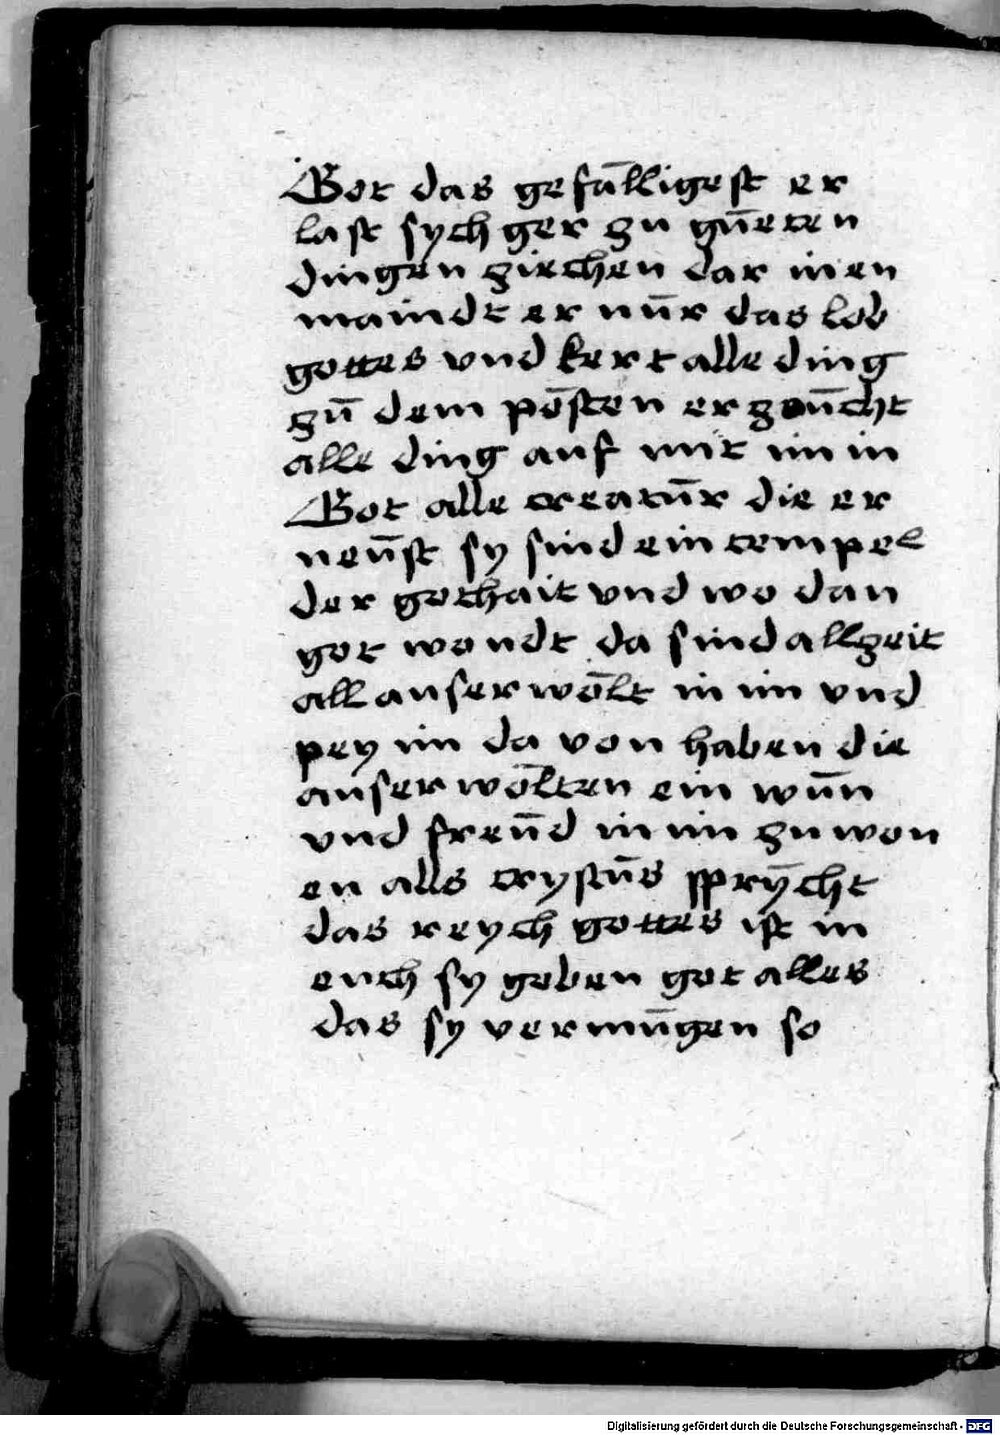 Got das gefälligest er
last sych ger zu gůeten
dingen ziechen dar in en
maindt er nůr das lob
gottes vnd kert alle ding
zů dem pösten er zeücht
alle ding auf mit im in
Got alle creatůr die er
neüst sy sind ein tempel
der gothait vnd wo dan
got wondt da sind allzeit
all auserwölt in im vnd
pey im da von haben die
auserwölten ein wůn
vnd freüd in im zu won
en alls crystůs sprÿcht
das reych gottes ist in
euch sy geben got alles
das sy vermůgen so
Digitalisierung gefördert durch die Deutsche Forschungsgemeinschaft - DFG